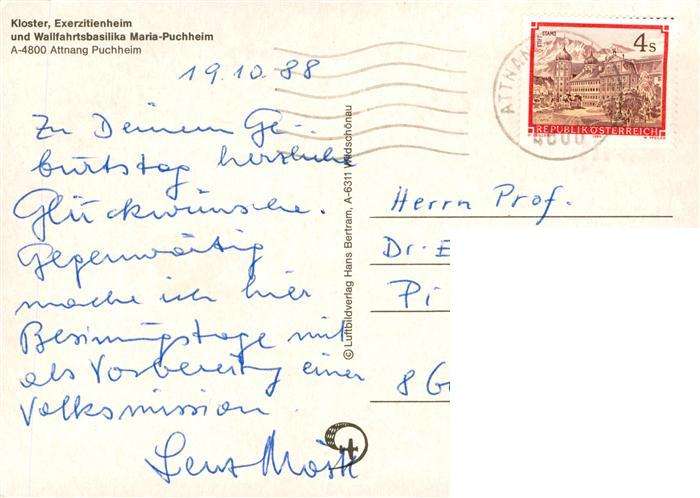 Kloster, Exerzitienheim
und Wallfahrtsbasilika Maria-Puchheim
A-4800 Attnang Puchheim
19.10.88
Zu Deinem Ge-
burtstag herzliche
Glückwünsche.
Gegenwärtig
mache ich hier
Besinnungstage mit
als Vorbereitung einer
Volksmission.
© Luftbildverlag Hans Bertram, A-6311 Wildschönau
STIFT STAMS
4 S
REPUBLIK ÖSTERREICH
ATTNAN
4800
Herrn Prof.
Dr. E
Pi
8 G